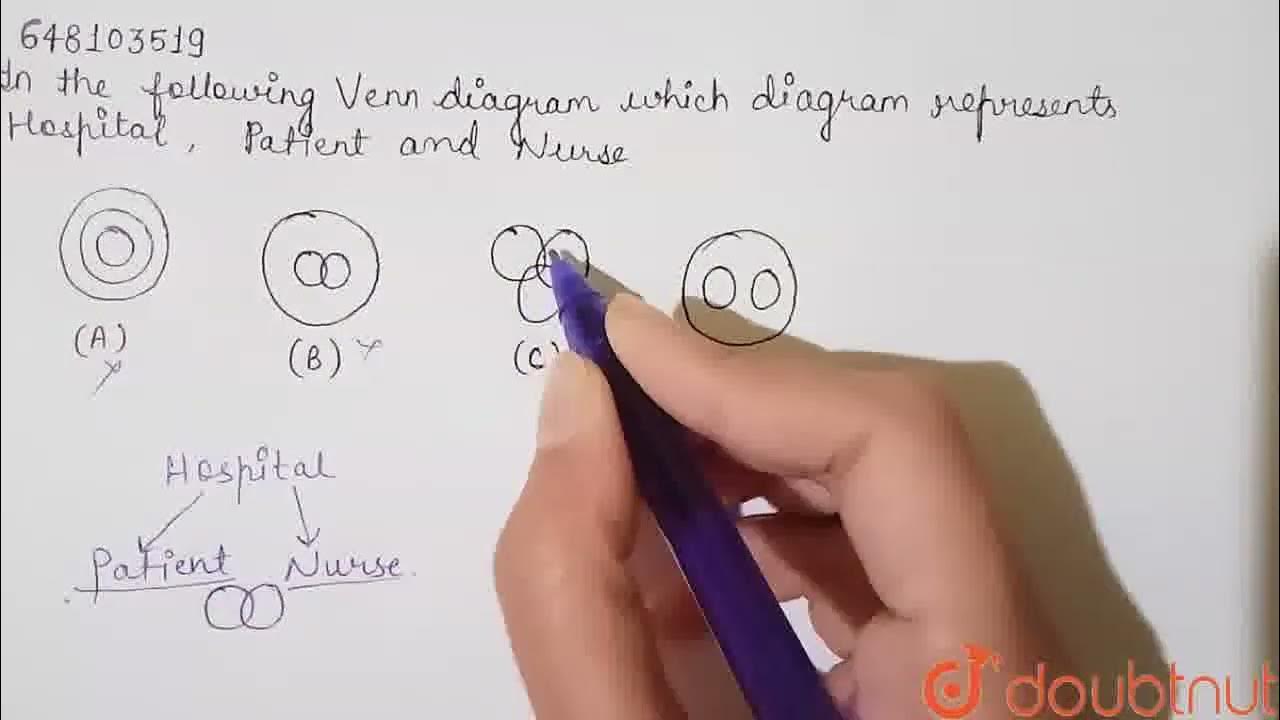 648103519
In the following Venn diagram which diagram represents
Hospital, Patient and Nurse
(A)
(B)
(C)
Hospital
Patient Nurse.
doubtnut